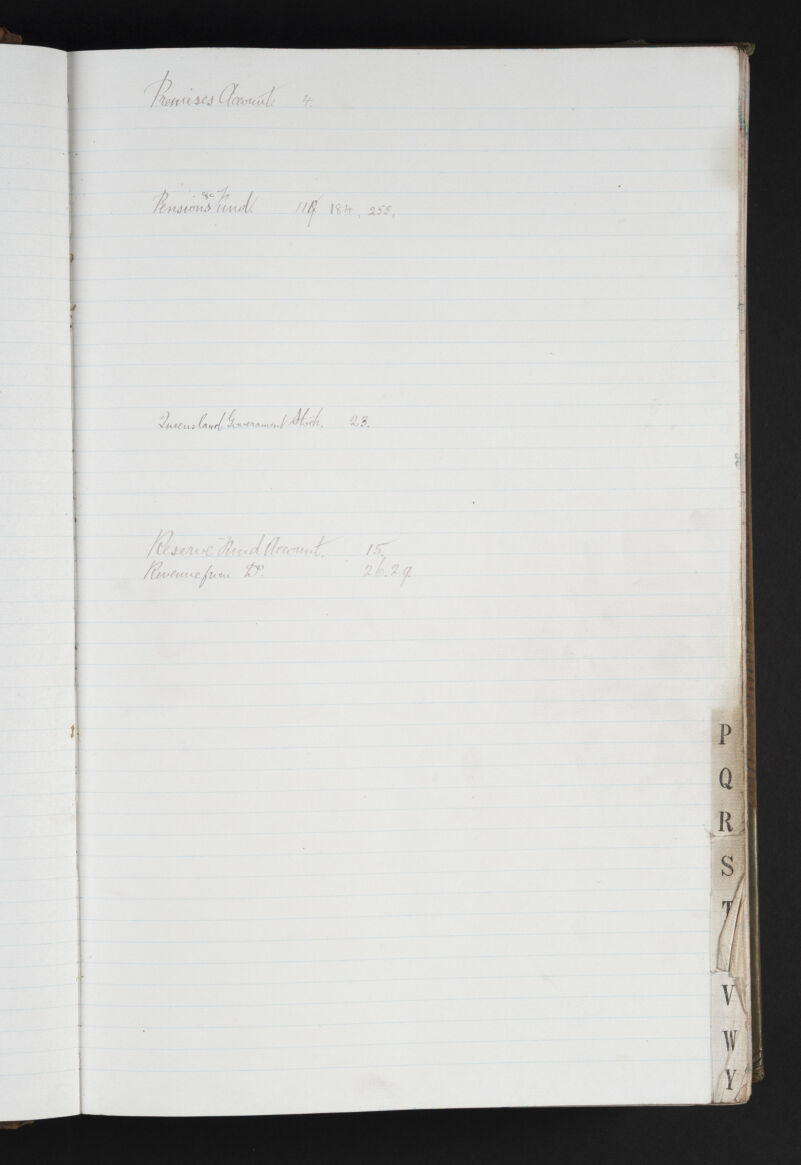 Premises Account 4.
Pensions &c Fund 119 184, 255,
Queensland Government Stock. 23.
Reserve Fund Account. 15
Revenue from Do. 26.29
P
Q
R
S
T
V
W
Y